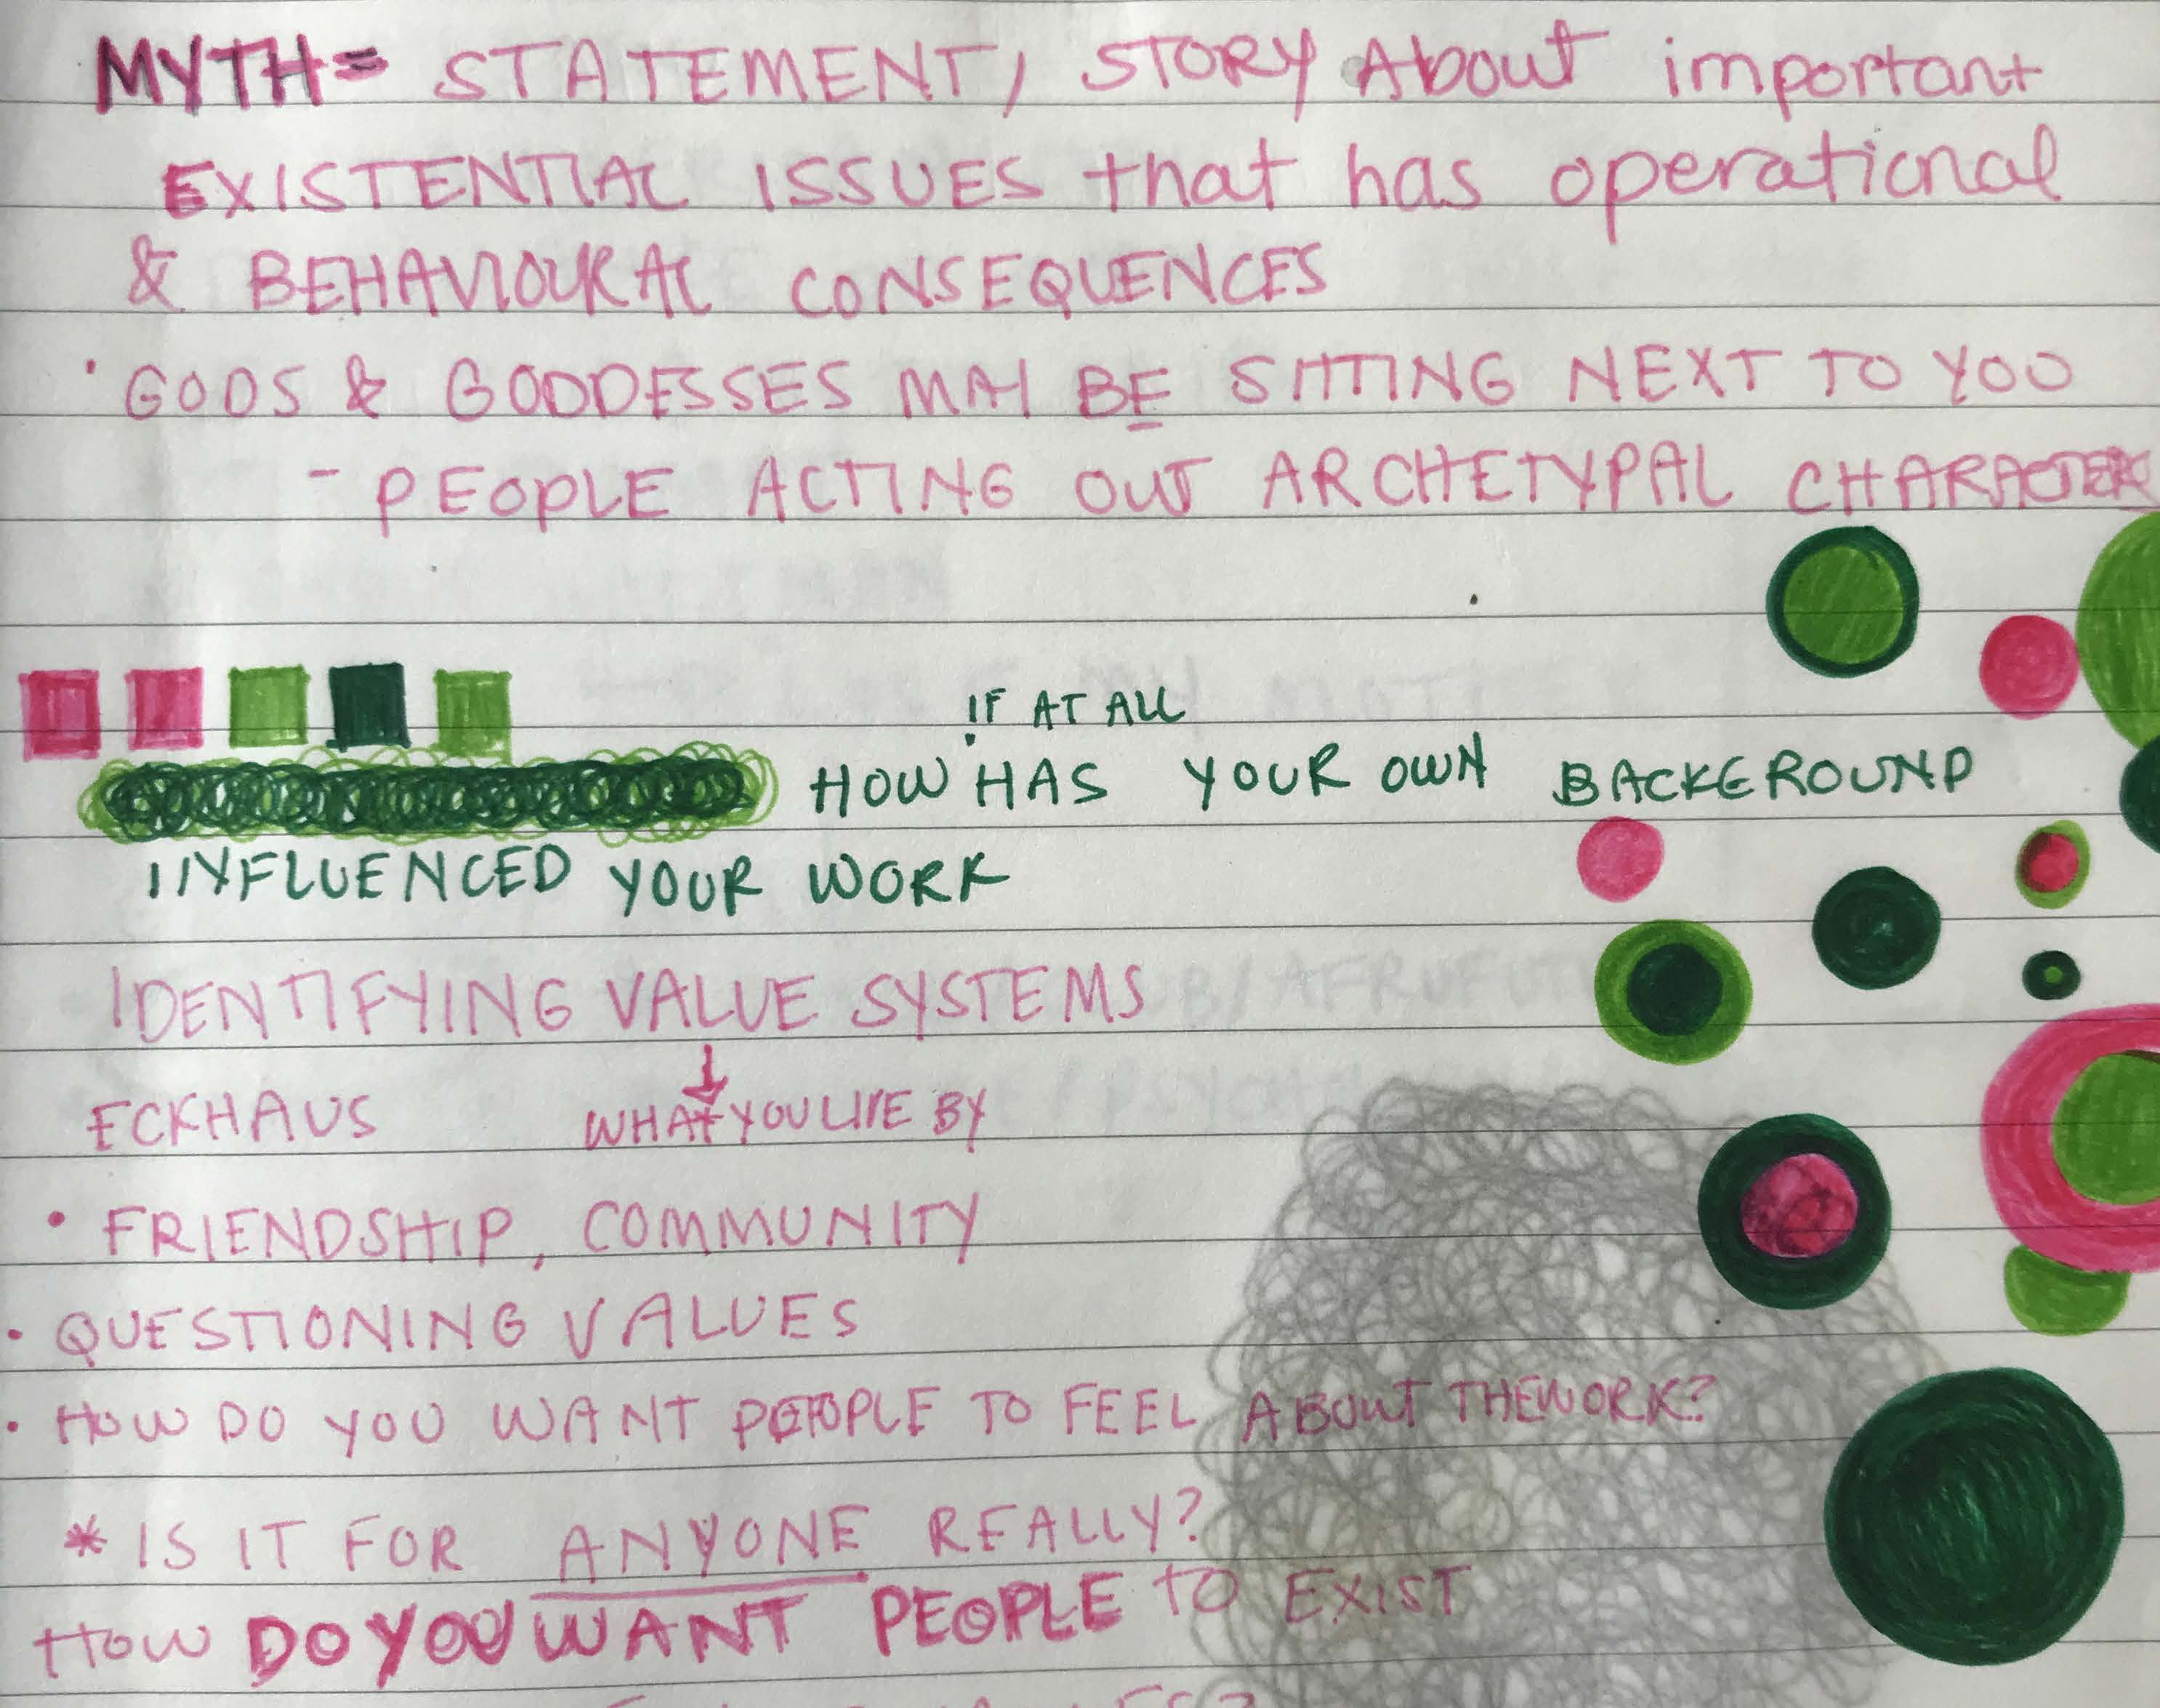 MYTH= STATEMENT, STORY About important
EXISTENTIAL ISSUES that has operational
& BEHAVIOURAL CONSEQUENCES
· GODS & GODDESSES MAY BE SITTING NEXT TO YOU
- PEOPLE ACTING OUT ARCHETYPAL CHARACTERS
IF AT ALL
HOW HAS YOUR OWN BACKGROUND
INFLUENCED YOUR WORK
IDENTIFYING VALUE SYSTEMS
ECKHAUS WHAT YOU LIVE BY
• FRIENDSHIP, COMMUNITY
• QUESTIONING VALUES
• HOW DO YOU WANT PEOPLE TO FEEL ABOUT THE WORK?
* IS IT FOR ANYONE REALLY?
HOW DO YOU WANT PEOPLE TO EXIST